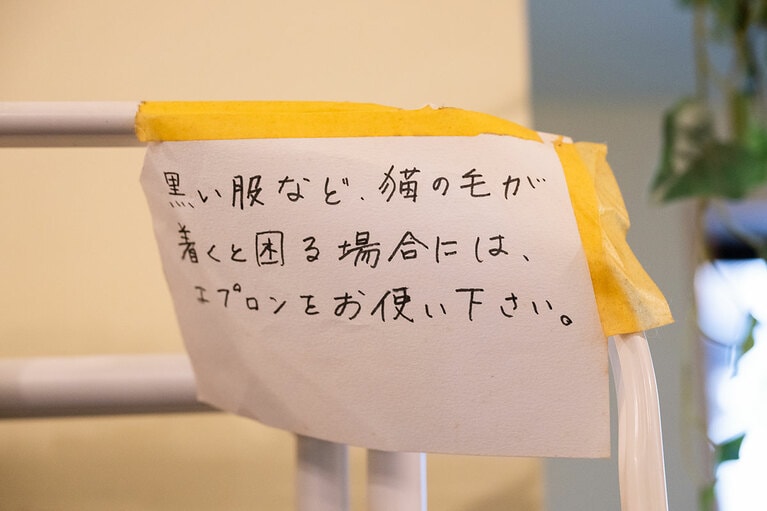 黒い服など、猫の毛が
着くと困る場合には、
エプロンをお使い下さい。